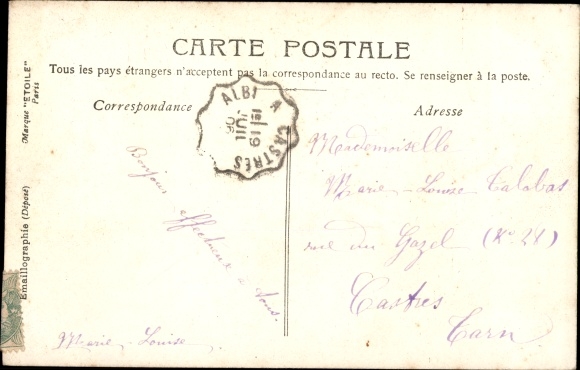 CARTE POSTALE
Tous les pays étrangers n'acceptent pas la correspondance au recto. Se renseigner à la poste.
Correspondance
Adresse
Marque "ETOILE" Paris
Emaillographie (Déposé)
ALBI A CASTRES
1e/19
JUIL
06
Bonjour
affectueux à tous.
Marie-Louise
Mademoiselle
Marie-Louise Calabas
rue du (No 24)
Castres
Tarn